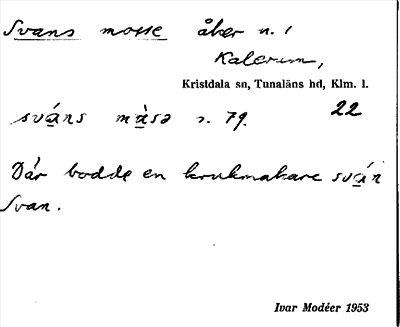 Svans mosse åker n. 1
Kalerum,
Kristdala sn, Tunaläns hd, Klm. l.
sváns màsə s. 79. 22
Där bodde en krukmakare sván
Svan.
Ivar Modéer 1953